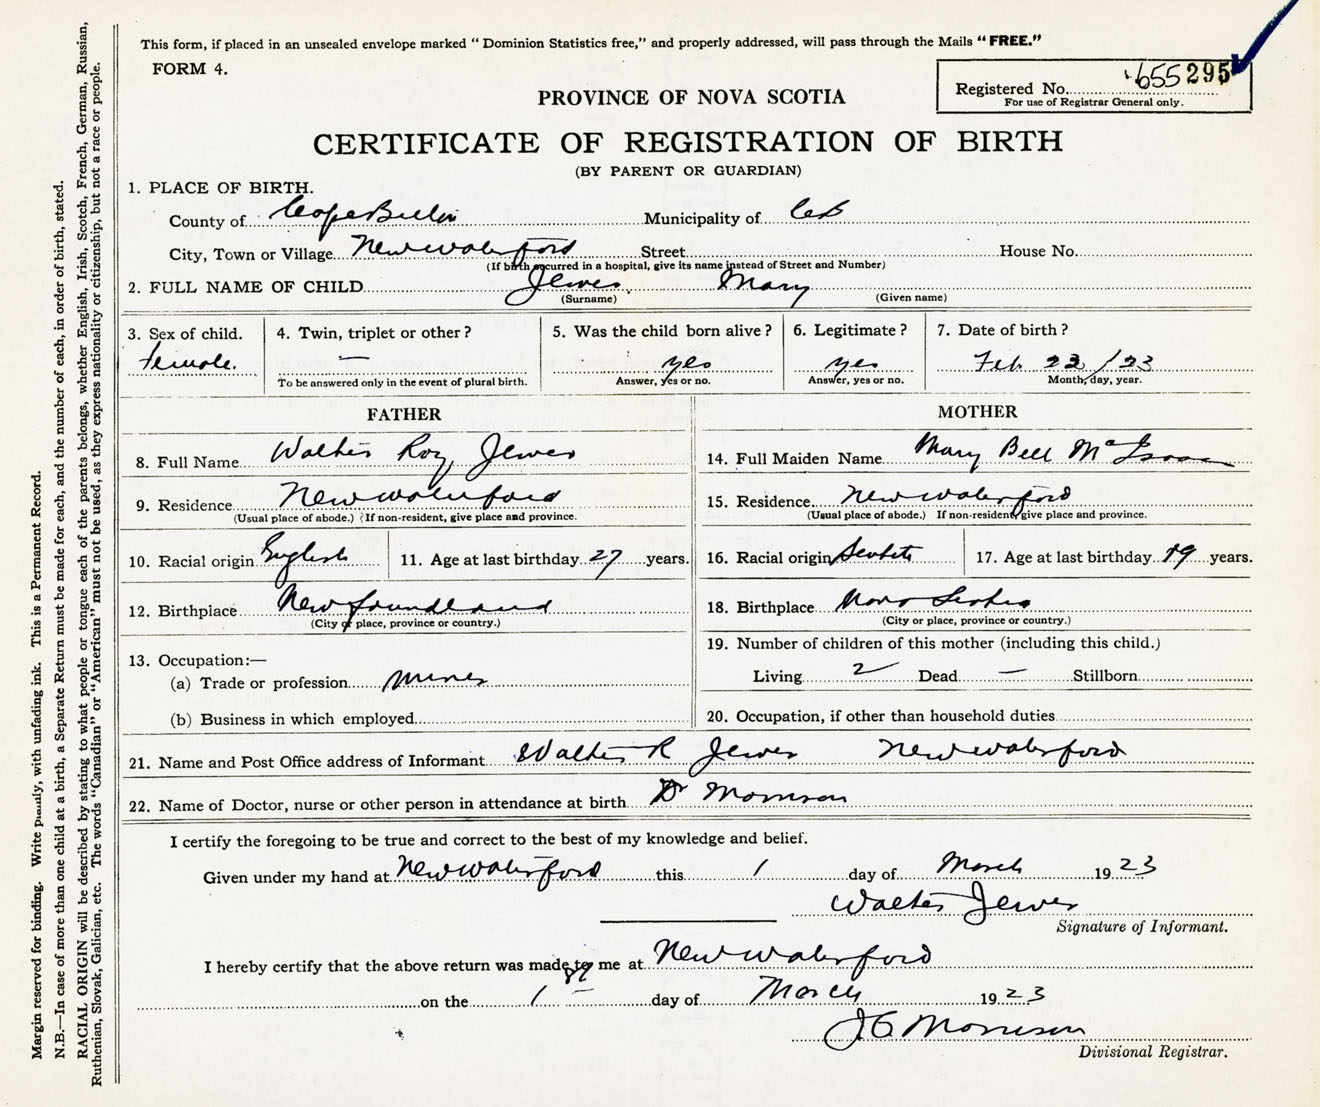 This form, if placed in an unsealed envelope marked "Dominion Statistics free," and properly addressed, will pass through the Mails "FREE."
FORM 4.
Registered No. 655295
For use of Registrar General only.
PROVINCE OF NOVA SCOTIA
CERTIFICATE OF REGISTRATION OF BIRTH
(BY PARENT OR GUARDIAN)
1. PLACE OF BIRTH.
County of Cape Breton Municipality of CB
City, Town or Village New Waterford Street House No.
(If birth occurred in a hospital, give its name instead of Street and Number)
2. FULL NAME OF CHILD Jewer Mary
(Surname) (Given name)
3. Sex of child. 4. Twin, triplet or other? 5. Was the child born alive? 6. Legitimate? 7. Date of birth?
female. — yes yes Feb 22/23
To be answered only in the event of plural birth. Answer, yes or no. Answer, yes or no. Month, day, year.
FATHER MOTHER
8. Full Name Walter Roy Jewer 14. Full Maiden Name Mary Bell McIsaac
9. Residence New Waterford 15. Residence New Waterford
(Usual place of abode.) If non-resident, give place and province. (Usual place of abode.) If non-resident, give place and province.
10. Racial origin English 11. Age at last birthday 27 years. 16. Racial origin Scotch 17. Age at last birthday 19 years.
12. Birthplace Newfoundland 18. Birthplace Nova Scotia
(City or place, province or country.) (City or place, province or country.)
13. Occupation:— 19. Number of children of this mother (including this child.)
(a) Trade or profession miner Living 2 Dead — Stillborn
(b) Business in which employed 20. Occupation, if other than household duties
21. Name and Post Office address of Informant Walter R Jewer New Waterford
22. Name of Doctor, nurse or other person in attendance at birth Dr Morrison
I certify the foregoing to be true and correct to the best of my knowledge and belief.
Given under my hand at New Waterford this 1 day of March 1923
Walter Jewer
Signature of Informant.
I hereby certify that the above return was made to me at New Waterford
on the 1st day of March 1923
J.G. Morrison
Divisional Registrar.
Margin reserved for binding. Write plainly, with unfading ink. This is a Permanent Record.
N.B.—In case of more than one child at a birth, a Separate Return must be made for each, and the number of each, in order of birth, stated.
RACIAL ORIGIN will be described by stating to what people or tongue each of the parents belongs, whether English, Irish, Scotch, French, German, Russian,
Ruthenian, Slovak, Galician, etc. The words "Canadian" or "American" must not be used, as they express nationality or citizenship, but not a race or people.